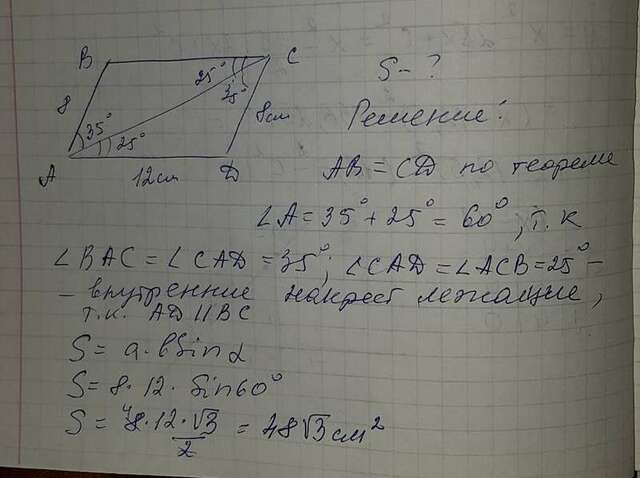 B C
25°
35°
8
35°
25°
8см
A 12см D
S - ?
Решение:
AB = CD по теореме
∠A = 35° + 25° = 60°, т.к
∠BAC = ∠CAD = 35°; ∠CAD = ∠ACB = 25° –
– внутренние накрест лежащие,
т.к. AD || BC
S = a · b sin α
S = 8 · 12 · Sin 60°
S = ⁴8 · 12 · √3 / 2 = 48√3 см²